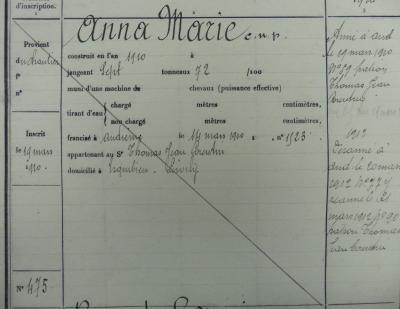 d'inscription.
Provient
du chantier
f°
n°
Inscrit
le 19 mars
1910.
N° 475
Anna Marie
construit en l'an 1910 à
jaugeant Sept tonneaux 72 /100
muni d'une machine de chevaux (puissance effective)
tirant d'eau { chargé mètres centimètres,
{ non chargé mètres centimètres,
francisé à le 19 mars 1910 n° 1523
appartenant au Sr Thomas Jean
domicilié à
Armé à
le 19 mars 1910
N° 59 patron
Thomas Jean
1912
Désarmé à
le 20 mars
1912 N° 77
mars 1912 N° 90
patron Thomas
Jean